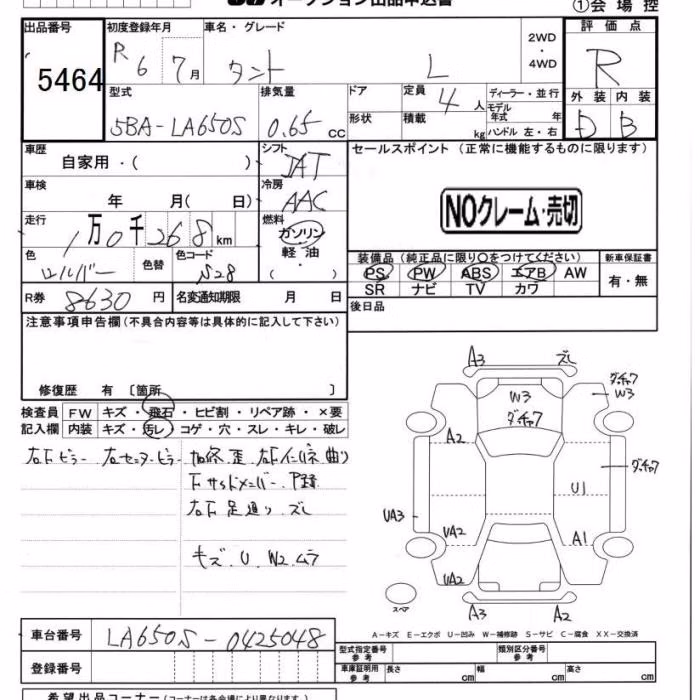 オークション出品申込書
①会場控
出品番号
5464
初度登録年月
R6 7月
車名・グレード
タント L
2WD・4WD
評価点
R
外装 内装
D B
型式
5BA-LA650S
排気量
0.65 cc
ドア
形状
定員 4人
積載 kg
ディーラー・並行
モデル年式 年
ハンドル 左・右
車歴
自家用・( )
シフト
車検
年 月( 日)
冷房
AAC
走行
1万0千268km
燃料
ガソリン
軽油
( )
色
色替
色コード
S28
R券 8630円
名変通知期限 月 日
セールスポイント (正常に機能するものに限ります)
NOクレーム・売切
装備品(純正品に限り○をつけてください)
PS PW ABS エアB AW
SR ナビ TV カワ
新車保証書
有・無
後日品
注意事項申告欄(不具合内容等は具体的に記入して下さい)
修復歴 有〔箇所 〕
検査員記入欄
FW キズ・飛石・ヒビ割・リペア跡・×要
内装 キズ・汚レ・コゲ・穴・スレ・キレ・破レ
右Fピラー 右センターピラー 加修歪 右Fインパネ曲り
Fサイドメンバー
右F足廻り ズレ
キズ U W2 ムラ
A3 ズレ
W3
ダッチャク
ダッチャク
W3
A2
ダッチャク
U1
UA3
UA2
A1
UA2
スペア
A3 A2
A-キズ E-エクボ U-凹み W-補修跡 S-サビ C-腐食 XX-交換済
車台番号 LA650S-0425048
登録番号
型式指定番号 参考
類別区分番号 参考
車庫証明用 参考
長さ cm
幅 cm
高さ cm
希望出品コーナー(コーナーは各会場により異なります)